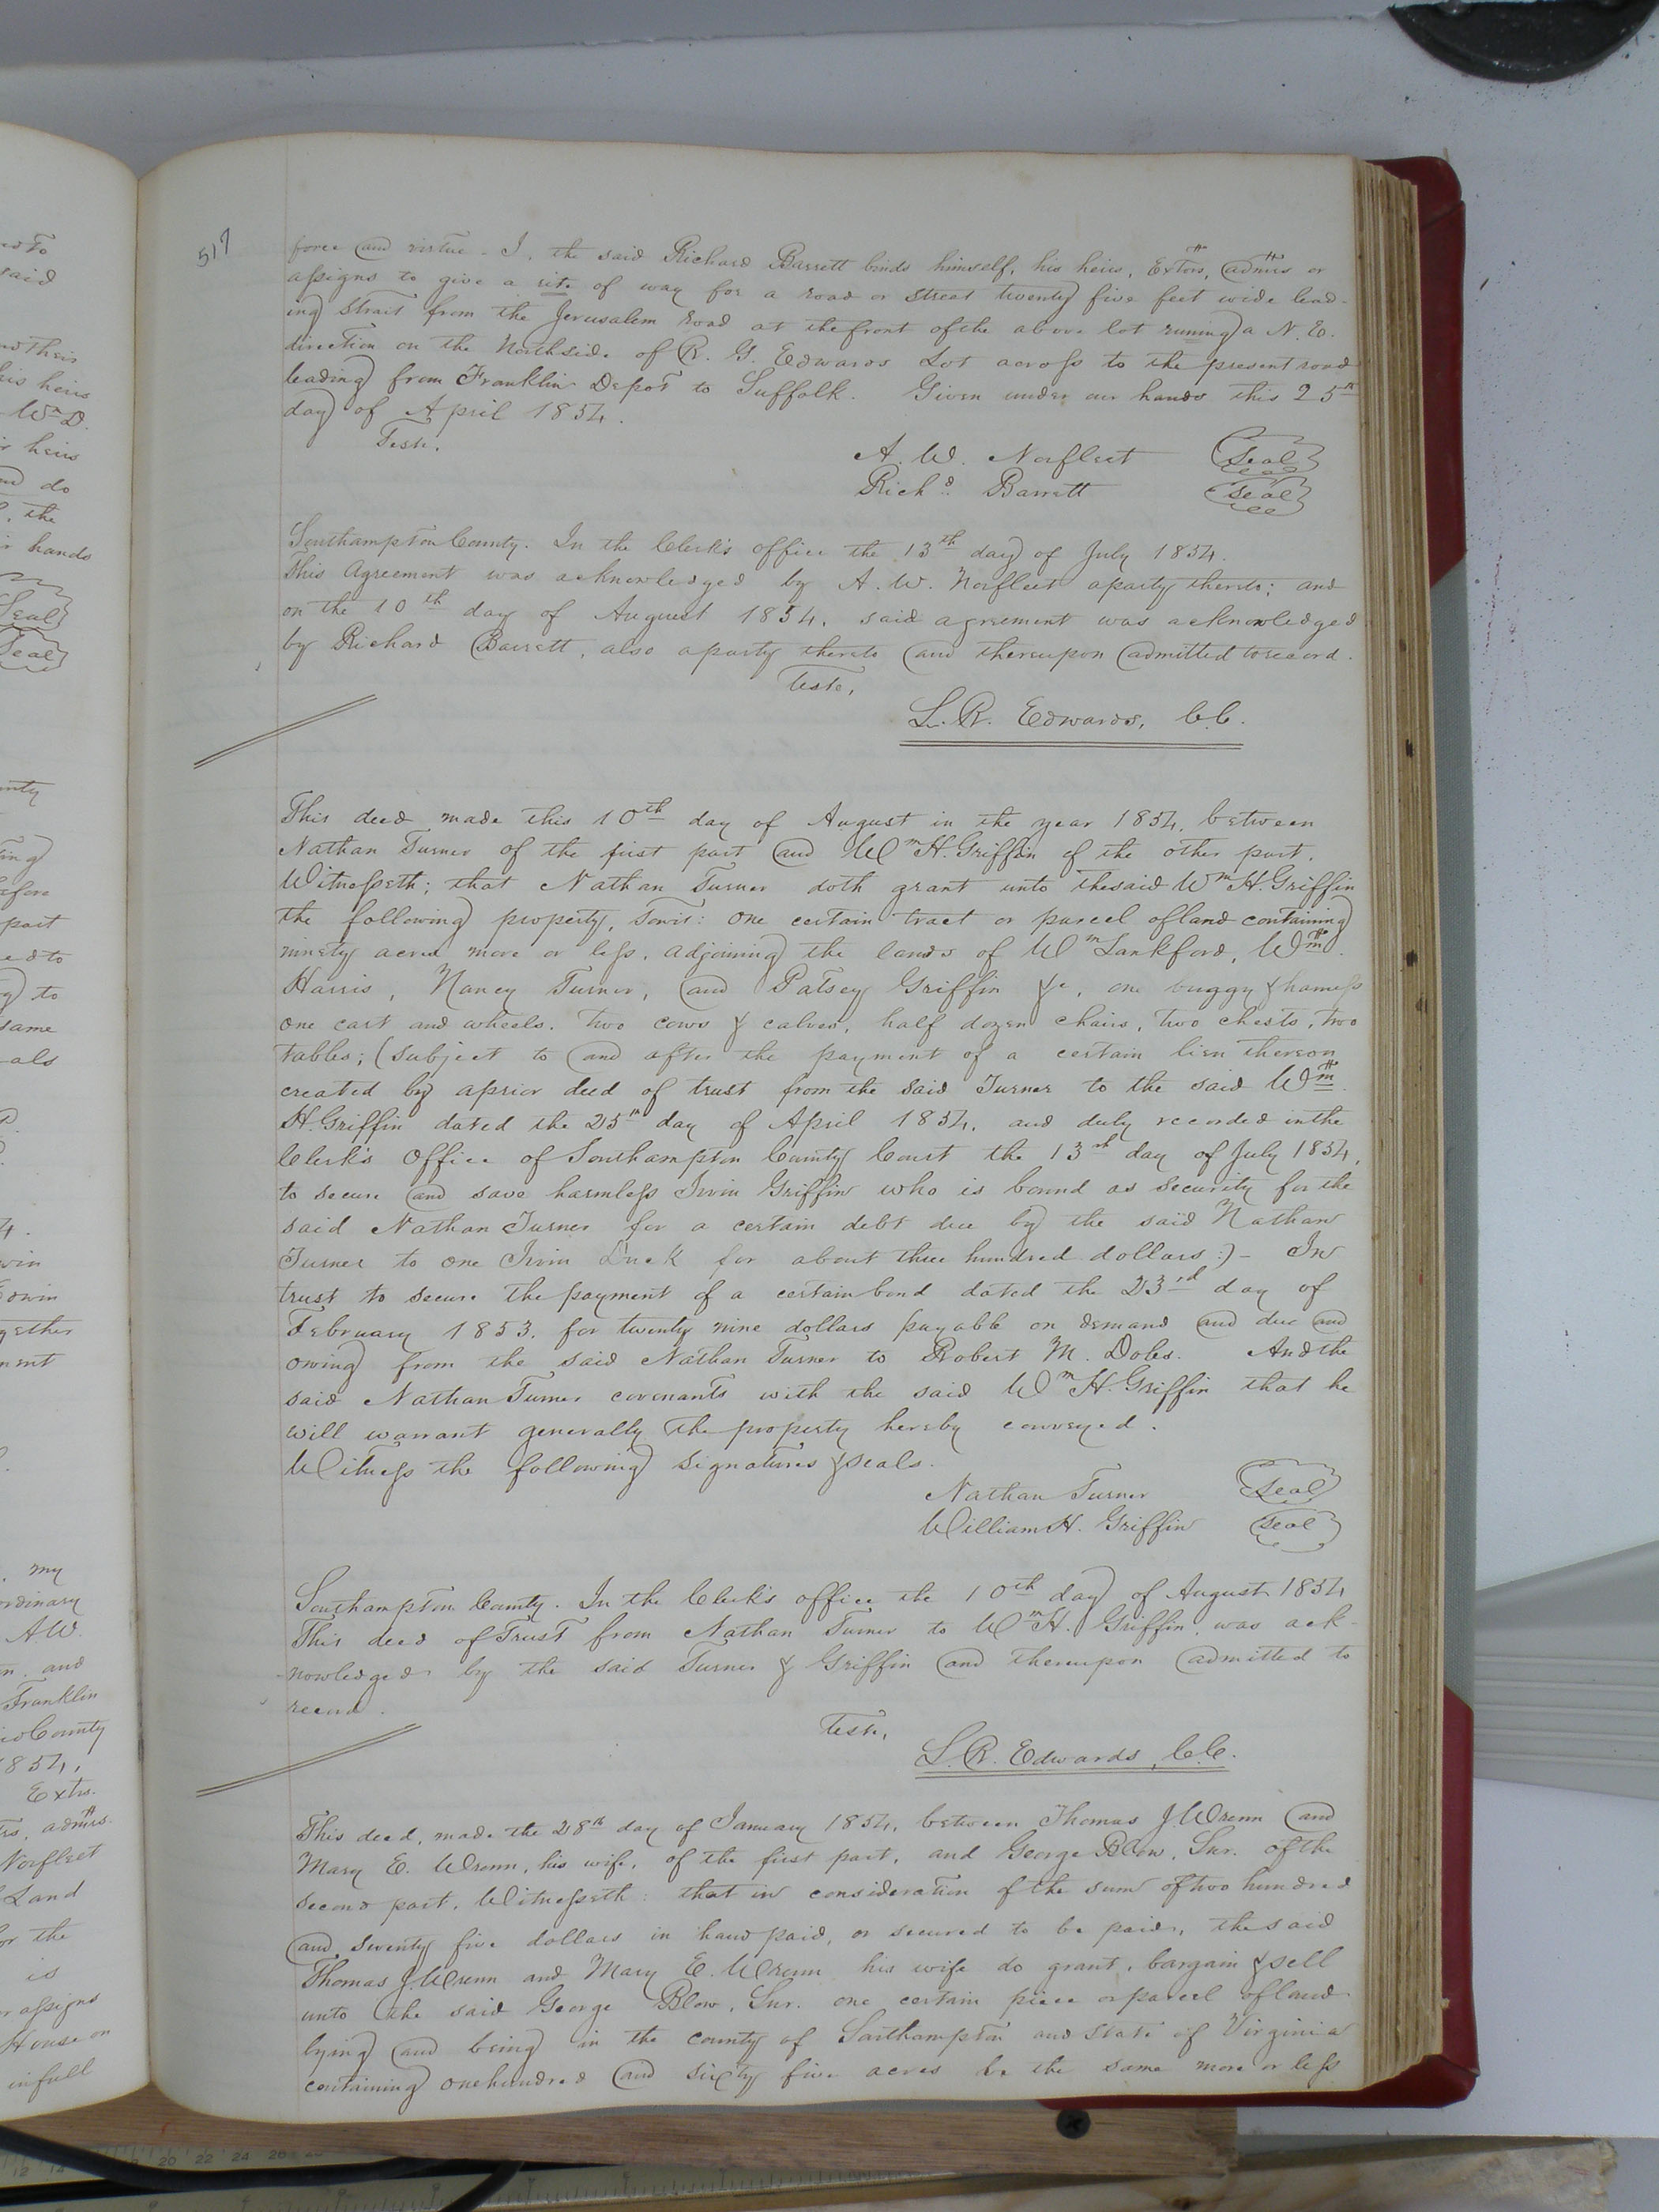 517
force and virtue. I, the said Richard Barrett binds himself, his heirs, Extors, admrs or
assigns to give a rite of way for a road or street twenty five feet wide lead-
ing strait from the Jerusalem road at the front of the above lot runing a N. E.
direction on the North side of R. G. Edwards Lot across to the present road
leading from Franklin Depot to Suffolk. Given under our hands this 25th
day of April 1854.
Teste.
A. W. Norfleet Seal
Richd. Barrett Seal
Southampton County. In the Clerk's office the 13th day of July 1854.
This Agreement was acknowledged by A. W. Norfleet a party thereto; and
on the 10th day of August 1854, said agreement was acknowledged
by Richard Barrett, also a party thereto and thereupon admitted to record.
Teste,
L. R. Edwards, C.C.
This deed made this 10th day of August in the year 1854, between
Nathan Turner of the first part and Wm H. Griffin of the other part.
Witnesseth; that Nathan Turner doth grant unto the said Wm H. Griffin
the following property, towit: one certain tract or parcel of land containing
ninety acres more or less, adjoining the lands of Wm Lankford, Wm.
Harris, Nancy Turner, and Patsey Griffin &c, one buggy & harness
one cart and wheels. two cows & calves, half dozen chairs, two chests, two
tables; (subject to and after the payment of a certain lien thereon
created by a prior deed of trust from the said Turner to the said Wm.
H. Griffin dated the 25th day of April 1854, and duly recorded in the
Clerk's Office of Southampton County Court the 13th day of July 1854,
to secure and save harmless Irvin Griffin who is bound as security for the
said Nathan Turner for a certain debt due by the said Nathan
Turner to one Irvin Duck for about three hundred dollars:)- In
trust to secure the payment of a certain bond dated the 23rd day of
February 1853, for twenty nine dollars payable on demand and due and
owing from the said Nathan Turner to Robert M. Doles. And the
said Nathan Turner covenants with the said Wm H. Griffin that he
will warrant generally the property hereby conveyed.
Witness the following signatures & seals.
Nathan Turner Seal
William H. Griffin Seal
Southampton County. In the Clerk's office the 10th day of August 1854
This deed of Trust from Nathan Turner to Wm H. Griffin, was ack-
nowledged by the said Turner & Griffin and thereupon admitted to
record.
Teste,
L. R. Edwards, C.C.
This deed, made the 28th day of January 1854, between Thomas J. Wrenn and
Mary E. Wrenn, his wife, of the first part, and George Blow, Snr. of the
second part, Witnesseth: that in consideration of the sum of two hundred
and seventy five dollars in hand paid, or secured to be paid, the said
Thomas J. Wrenn and Mary E. Wrenn his wife do grant, bargain & sell
unto the said George Blow, Snr. one certain piece or parcel of land
lying and being in the county of Southampton and State of Virginia
containing one hundred and sixty five acres be the same more or less